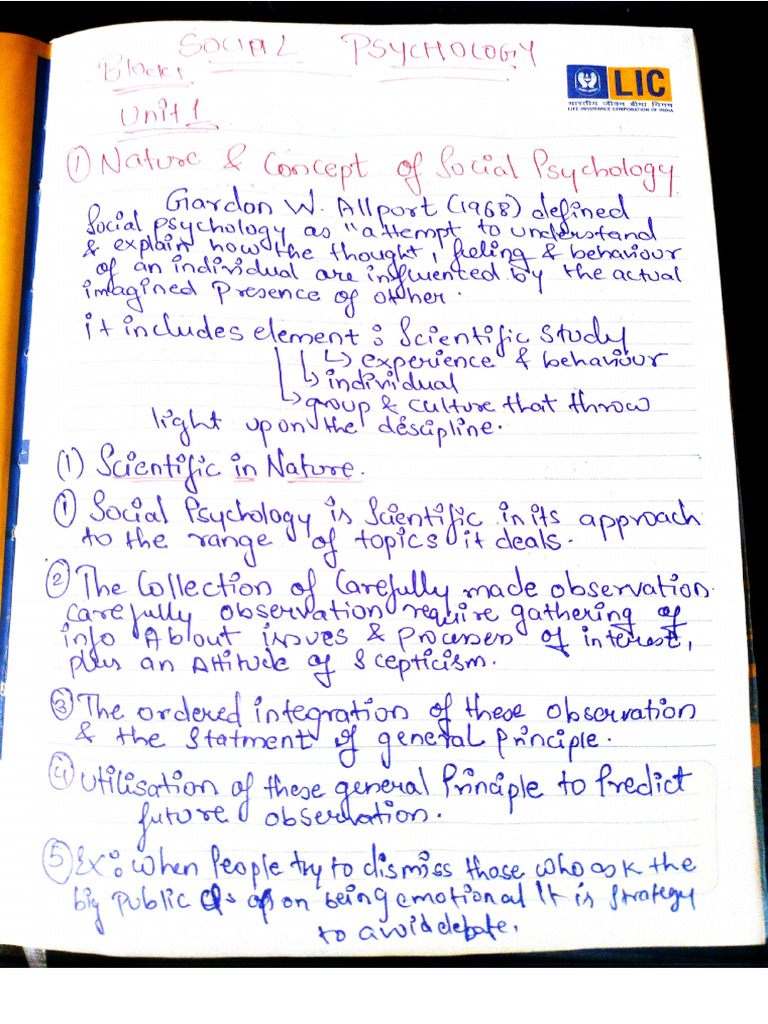 SOCIAL PSYCHOLOGY
Block 1
LIC
भारतीय जीवन बीमा निगम
LIFE INSURANCE CORPORATION OF INDIA
Unit 1
① Nature & Concept of Social Psychology
Gardon W. Allport (1968) defined
Social psychology as "attempt to understand
& explain how the thought, feeling & behaviour
of an individual are influented by the actual
imagined Presence of other.
it includes element : Scientific Study
↳ experience & behaviour
↳ individual
↳ group & culture that throw
light upon the descipline.
(1) Scientific in Nature.
① Social Psychology is Scientific in its approach
to the range of topics it deals.
② The Collection of Carefully made observation.
Carefully observation require gathering of
info About issues & Processes of interest,
plus an Attitude of Scepticism.
③ The ordered integration of these observation
& the Statment of general principle.
④ Utilisation of these general Principle to Predict
future observation.
⑤ Ex: When People try to dismiss those who ask the
big Public Qs on being emotional It is Strategy
to avoid debate.